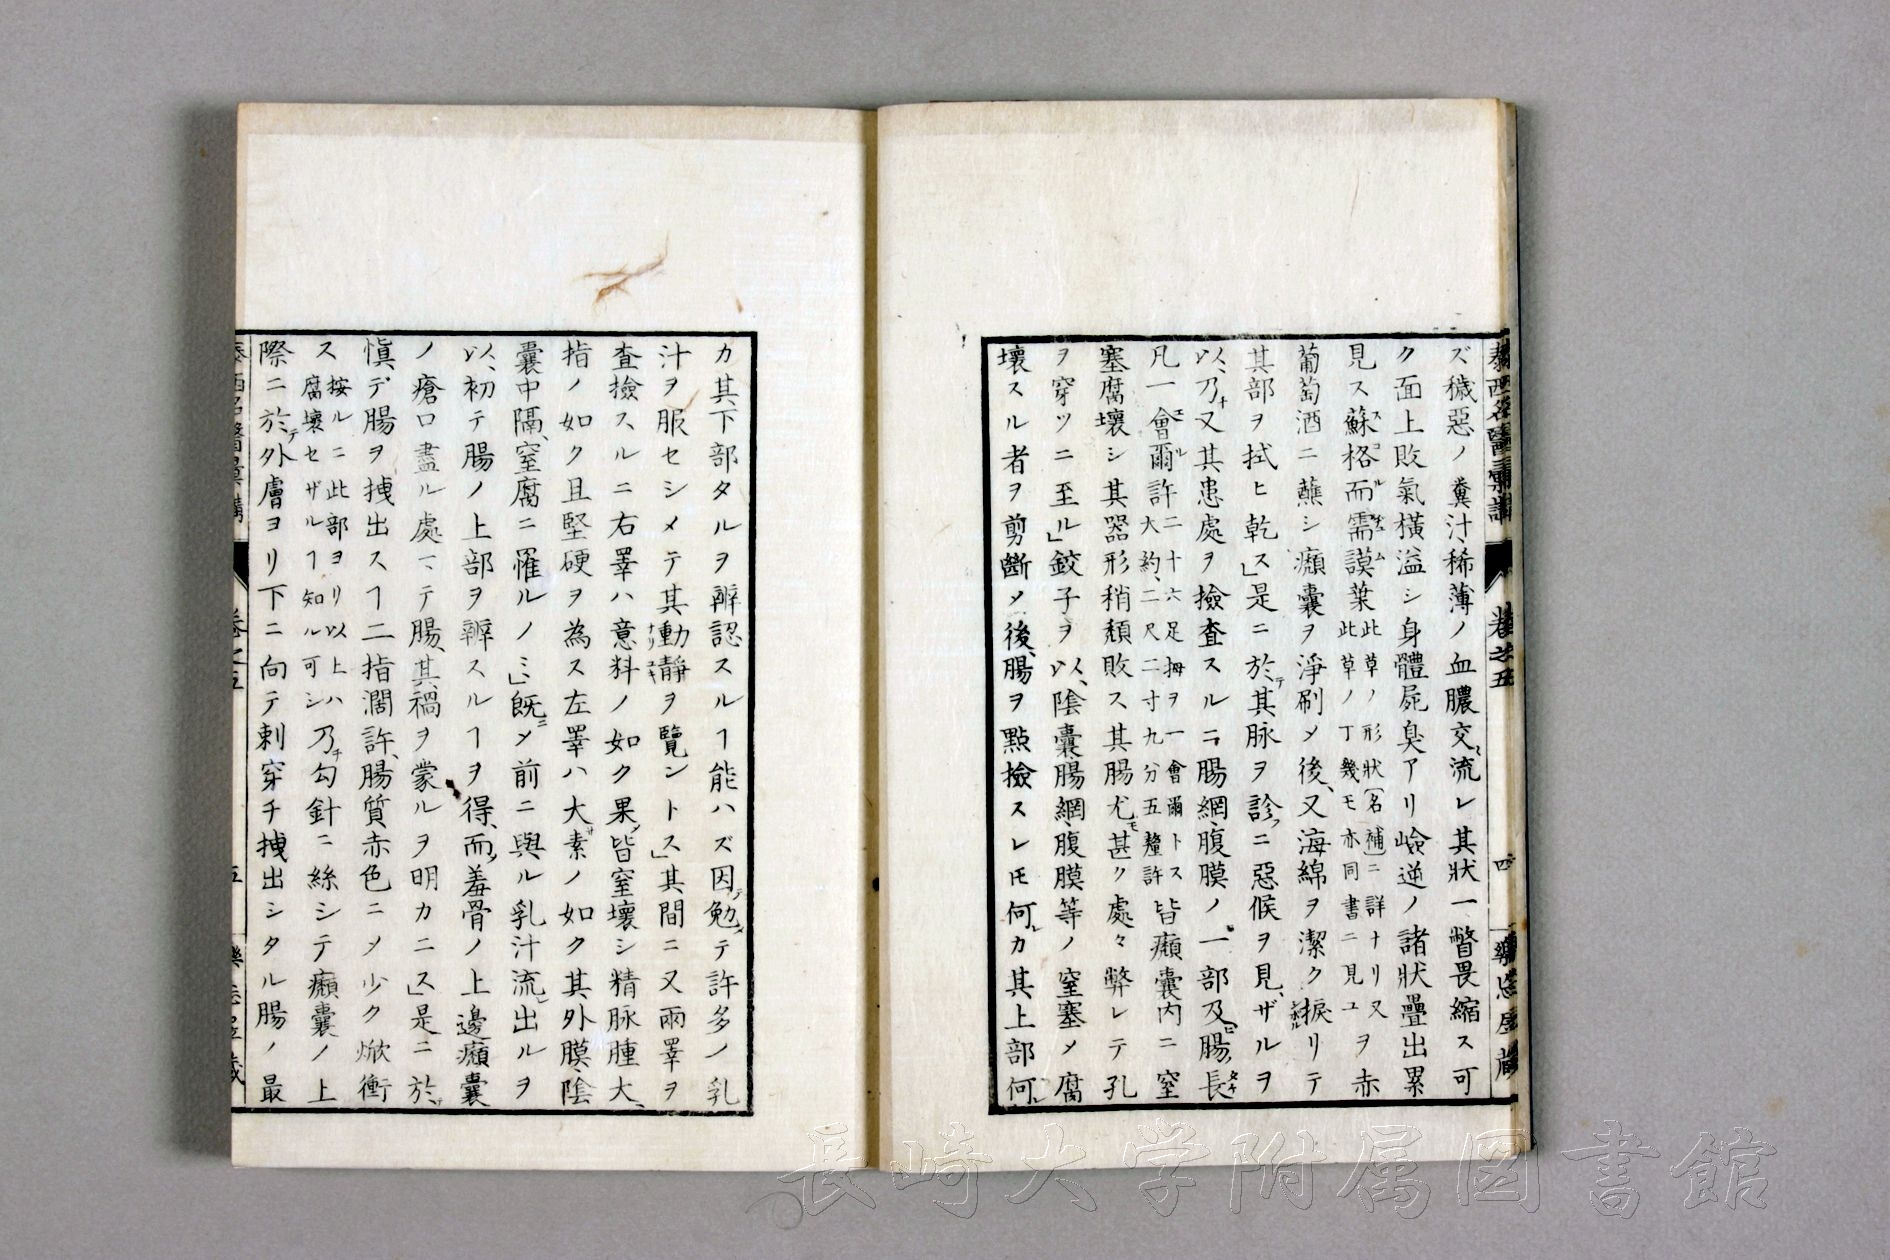 泰西名醫彙講 卷之五 四
ズ穢惡ノ糞汁稀薄ノ血膿交流レ其狀一瞥畏縮ス可
ク面上敗氣橫溢シ身體屍臭アリ嶮逆ノ諸狀疊出累
見ス蘇格而需謨葉此草ノ形狀〔名補〕ニ詳ナリ又此草ノ丁幾モ亦同書ニ見ユヲ赤
葡萄酒ニ蘸シ癩囊ヲ淨刷〆後、又海綿ヲ潔ク捩リテ
其部ヲ拭ヒ乾ス」是ニ於テ其脉ヲ診ニ惡候ヲ見ザルヲ
以、乃チ又其患處ヲ撿査スルニ腸網、腹膜ノ一部及ヒ腸ノ長
凡一會爾許二十六足拇ヲ一會爾トス大約、二尺二寸九分五釐許皆癩囊内ニ窒
塞腐壞シ其器形稍頹敗ス其腸尤モ甚ク處々弊レテ孔
ヲ穿ツニ至ル」鉸子ヲ以、陰囊腸網、腹膜等ノ窒塞〆腐
壞スル者ヲ剪斷〆後、腸ヲ點撿スレ𪜈何レカ其上部何レ
カ其下部タルヲ辨認スルヿ能ハズ因テ勉〆テ許多ノ乳
汁ヲ服セシメテ其動靜ヲ覽ントス」其間ニ又兩睪ヲ
査撿スルニ右睪ハ意料ノ如ク果〆皆窒壞シ精脉腫大、
指ノ如ク且堅硬ヲ為ス左睪ハ大素ノ如ク其外膜、陰
囊中隔、窒腐ニ罹ルノミ」既ニ〆前ニ與ル乳汁流レ出ルヲ
以、初テ腸ノ上部ヲ辨スルヿヲ得、而〆羞骨ノ上邊癩囊
ノ瘡口盡ル處ニテ腸、其禍ヲ蒙ルヲ明カニス」是ニ於テ
愼デ腸ヲ拽出スヿ二指濶許、腸質赤色ニ〆少ク焮衝
ス按ルニ此部ヨリ以上ハ腐壞セザルヿ知ル可シ乃チ勾針ニ絲シテ癩囊ノ上
際ニ於テ外膚ヨリ下ニ向テ刺穿チ拽出シタル腸ノ最
長崎大学附属図書館